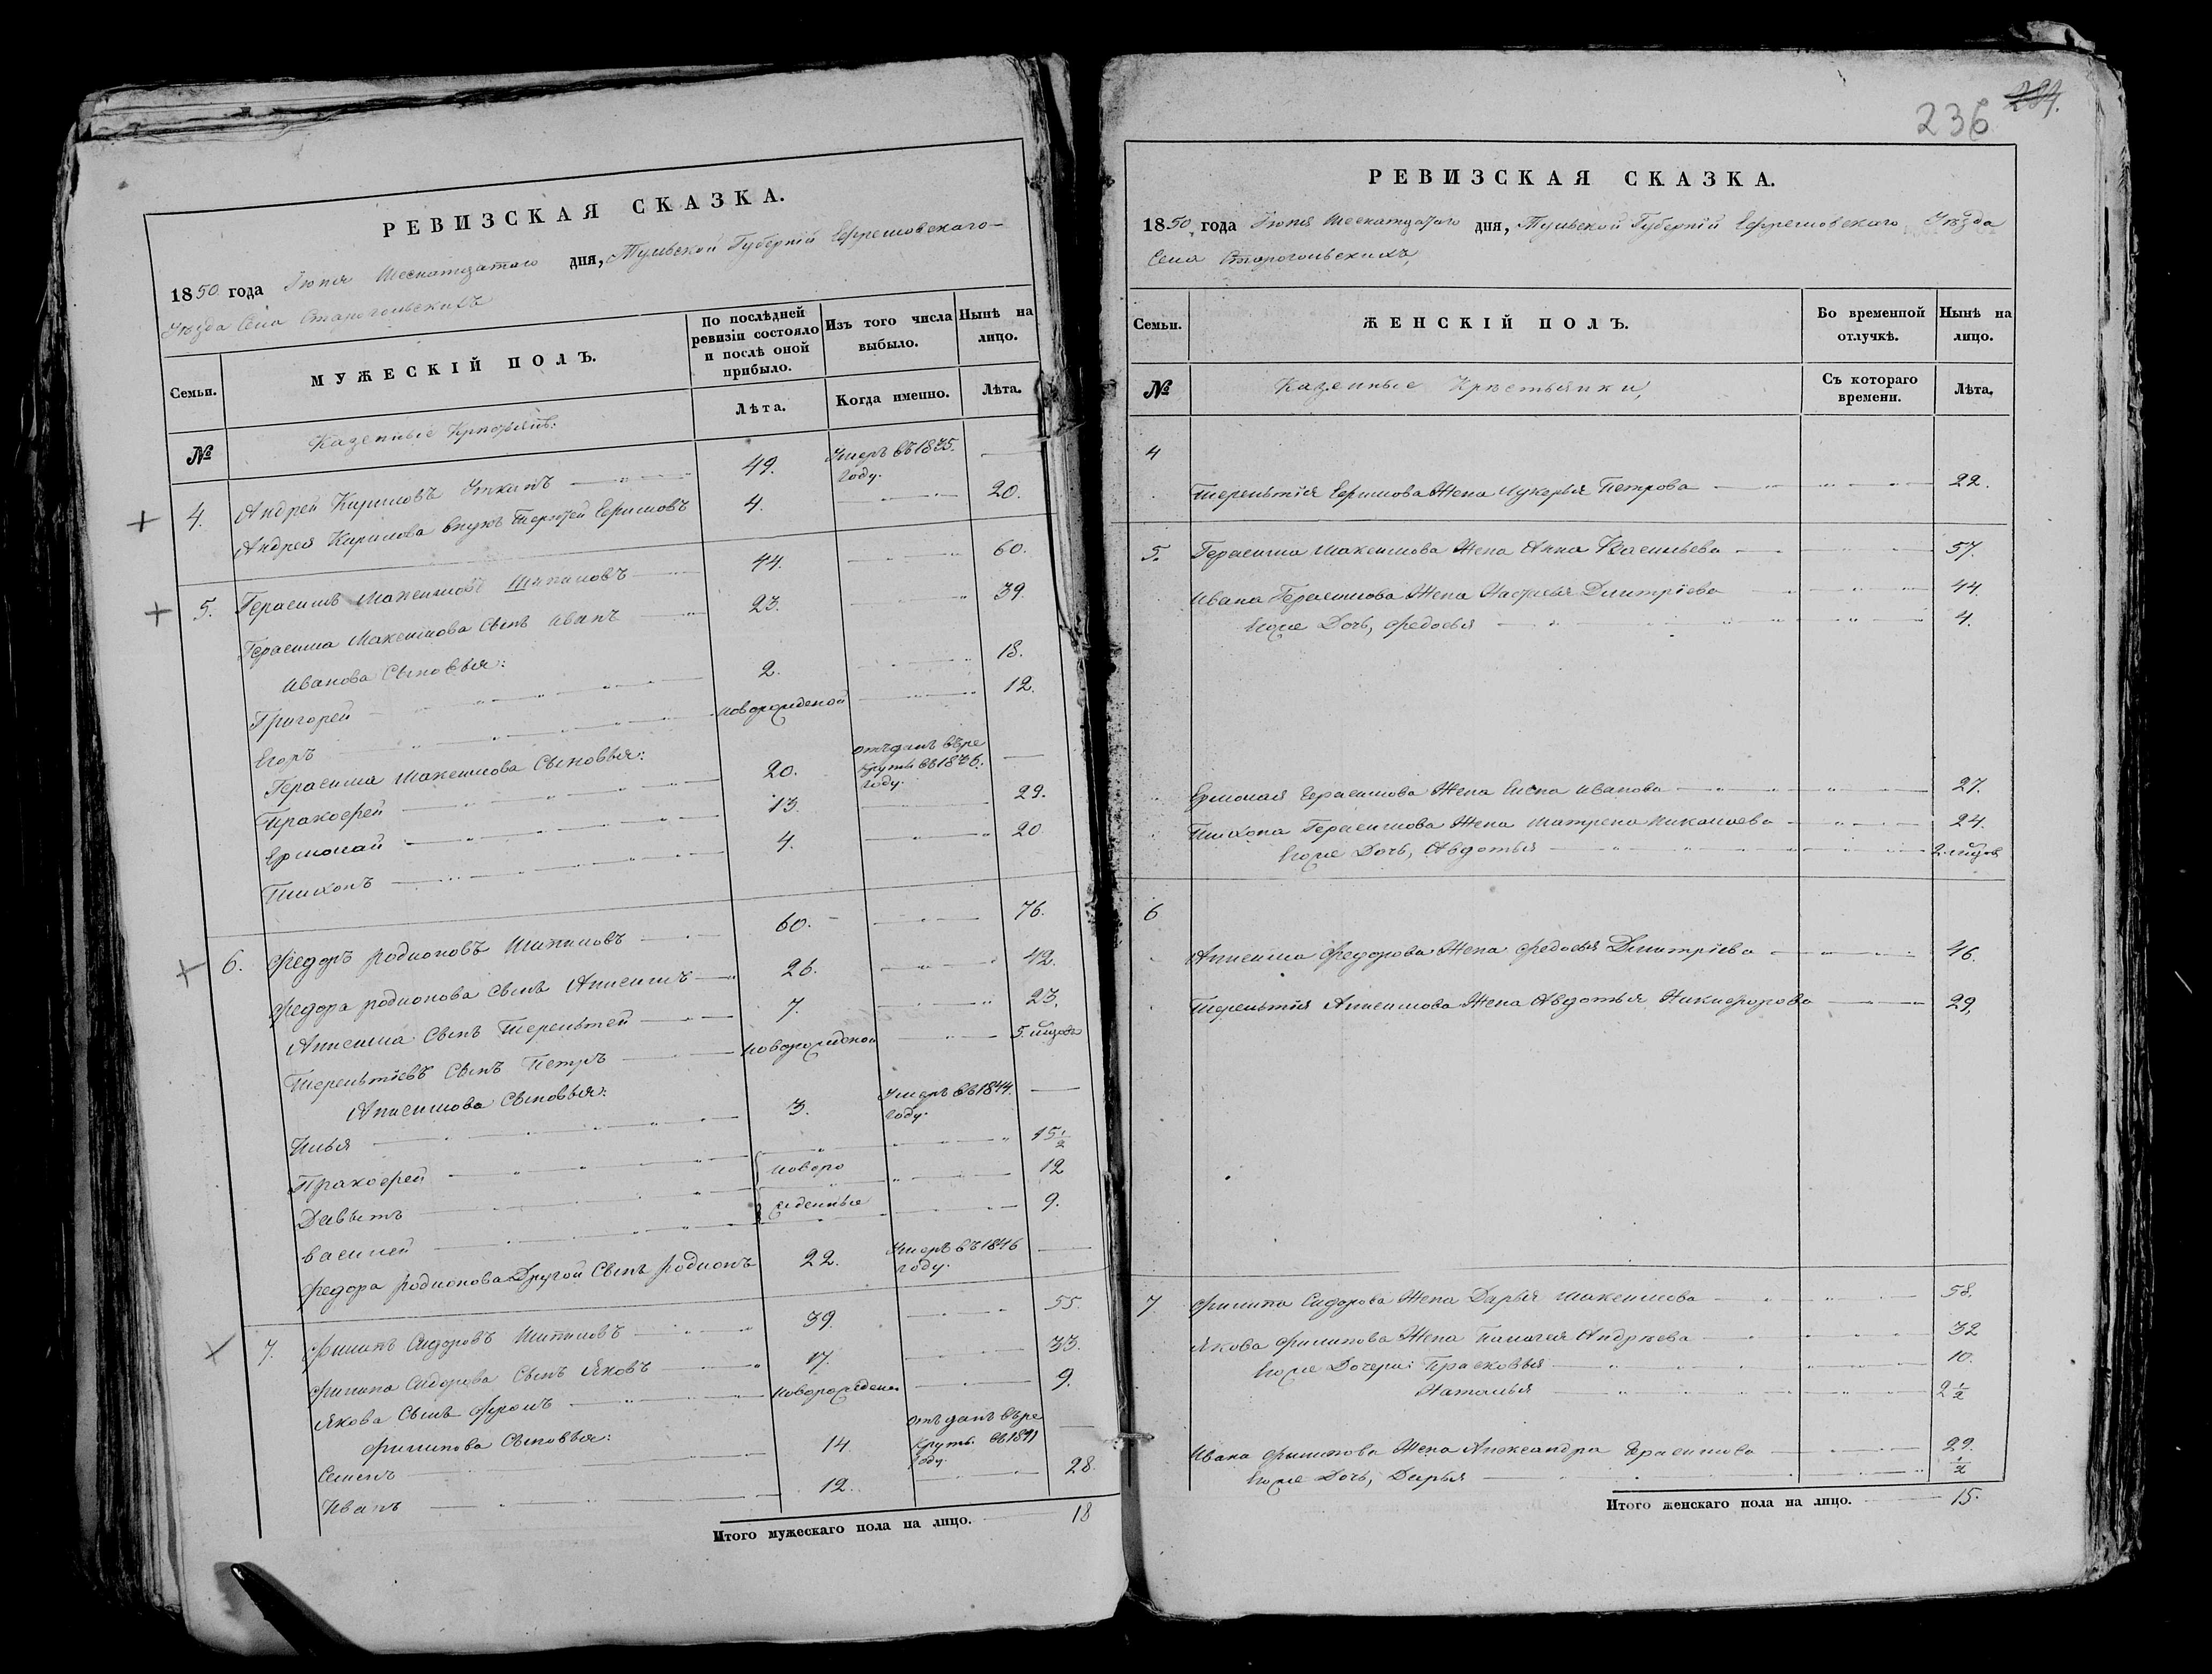 РЕВИЗСКАЯ СКАЗКА.
1850 года Іюня Шеснатцатаго дня, Тульской Губерніи Ефремовскаго
Уѣзда Села Старогольскихъ
Семьи. МУЖЕСКІЙ ПОЛЪ. По послѣдней ревизіи состояло и послѣ оной прибыло. Изъ того числа выбыло. Нынѣ на лицо.
№ Казенные Лѣта. Когда именно. Лѣта.
4. Андрей Кириловъ 49. Умеръ въ 1835. году.
Андрея Кирилова внукъ Ефимовъ 4. 20.
5. Герасимъ Максимовъ Шипиловъ 44. 60.
Герасима Максимова Сынъ Иванъ 23. 39.
Иванова Сыновья:
Григорей 2. 18.
Егоръ новорожденой 12.
Герасима Максимова Сыновья:
Пракофей 20. отъданъ въ ре круты въ 1836. году.
Ермолай 13. 29.
Тихонъ 4. 20
6. Федоръ Родионовъ Шипиловъ 60. 76.
Федора Родионова Сынъ Анисимъ 26. 42.
Анисима Сынъ Терентей 7. 23.
Терентіевъ Сынъ Петръ новорожденой 5.
Анисимова Сыновья:
Илья 3. Умеръ въ 1844. году.
Пракофей 15 1/2
Давытъ новоро 12
Василей жденные 9.
Федора Родионова Другой Сынъ Родионъ 22. Умеръ въ 1846 году.
7. Филипъ Сидоровъ Шипиловъ 39. 55.
Филипа Сидорова Сынъ Яковъ 17. 33.
Якова Сынъ Фролъ 9.
Филипова Сыновья:
Семенъ 14. отъданъ въ ре круты въ 1841 году.
Иванъ 12. 28.
Итого мужескаго пола на лицо. 18
236 284.
РЕВИЗСКАЯ СКАЗКА.
1850, года Іюня Шеснатцатаго дня, Тульской Губерніи Ефремовскаго Уѣзда
Села Старогольскихъ,
Семьи. ЖЕНСКІЙ ПОЛЪ. Во временной отлучкѣ. Нынѣ на лицо.
№ Казенные Крѣстьянки, Съ котораго времени. Лѣта,
4
Терентия Ефимова Жена Лукерья Петрова 22.
5. Герасима Максимова Жена Анна Васильева 57.
Ивана Герасимова Жена Настасья Дмитріева 44.
Егоже Дочь, Федосья 4.
Ермолая Герасимова Жена Елена Иванова 27.
Тихона Герасимова Жена Матрена Николаева 24.
Егоже Дочь, Авдотья 2.
6
Анисима Федорова Жена Федосья Дмитріева 46.
Терентия Анисимова Жена Авдотья Никифорова 29,
7 Филипа Сидорова Жена Дарья Максимова 58.
Якова Филипова Жена Палагея Андрѣева 32
Егоже Дочери: Прасковья 10.
Наталья 2 1/2
Ивана Филипова Жена Александра Герасимова 29.
Егоже Дочь, Дарья 1/2
Итого женскаго пола на лицо. 15.